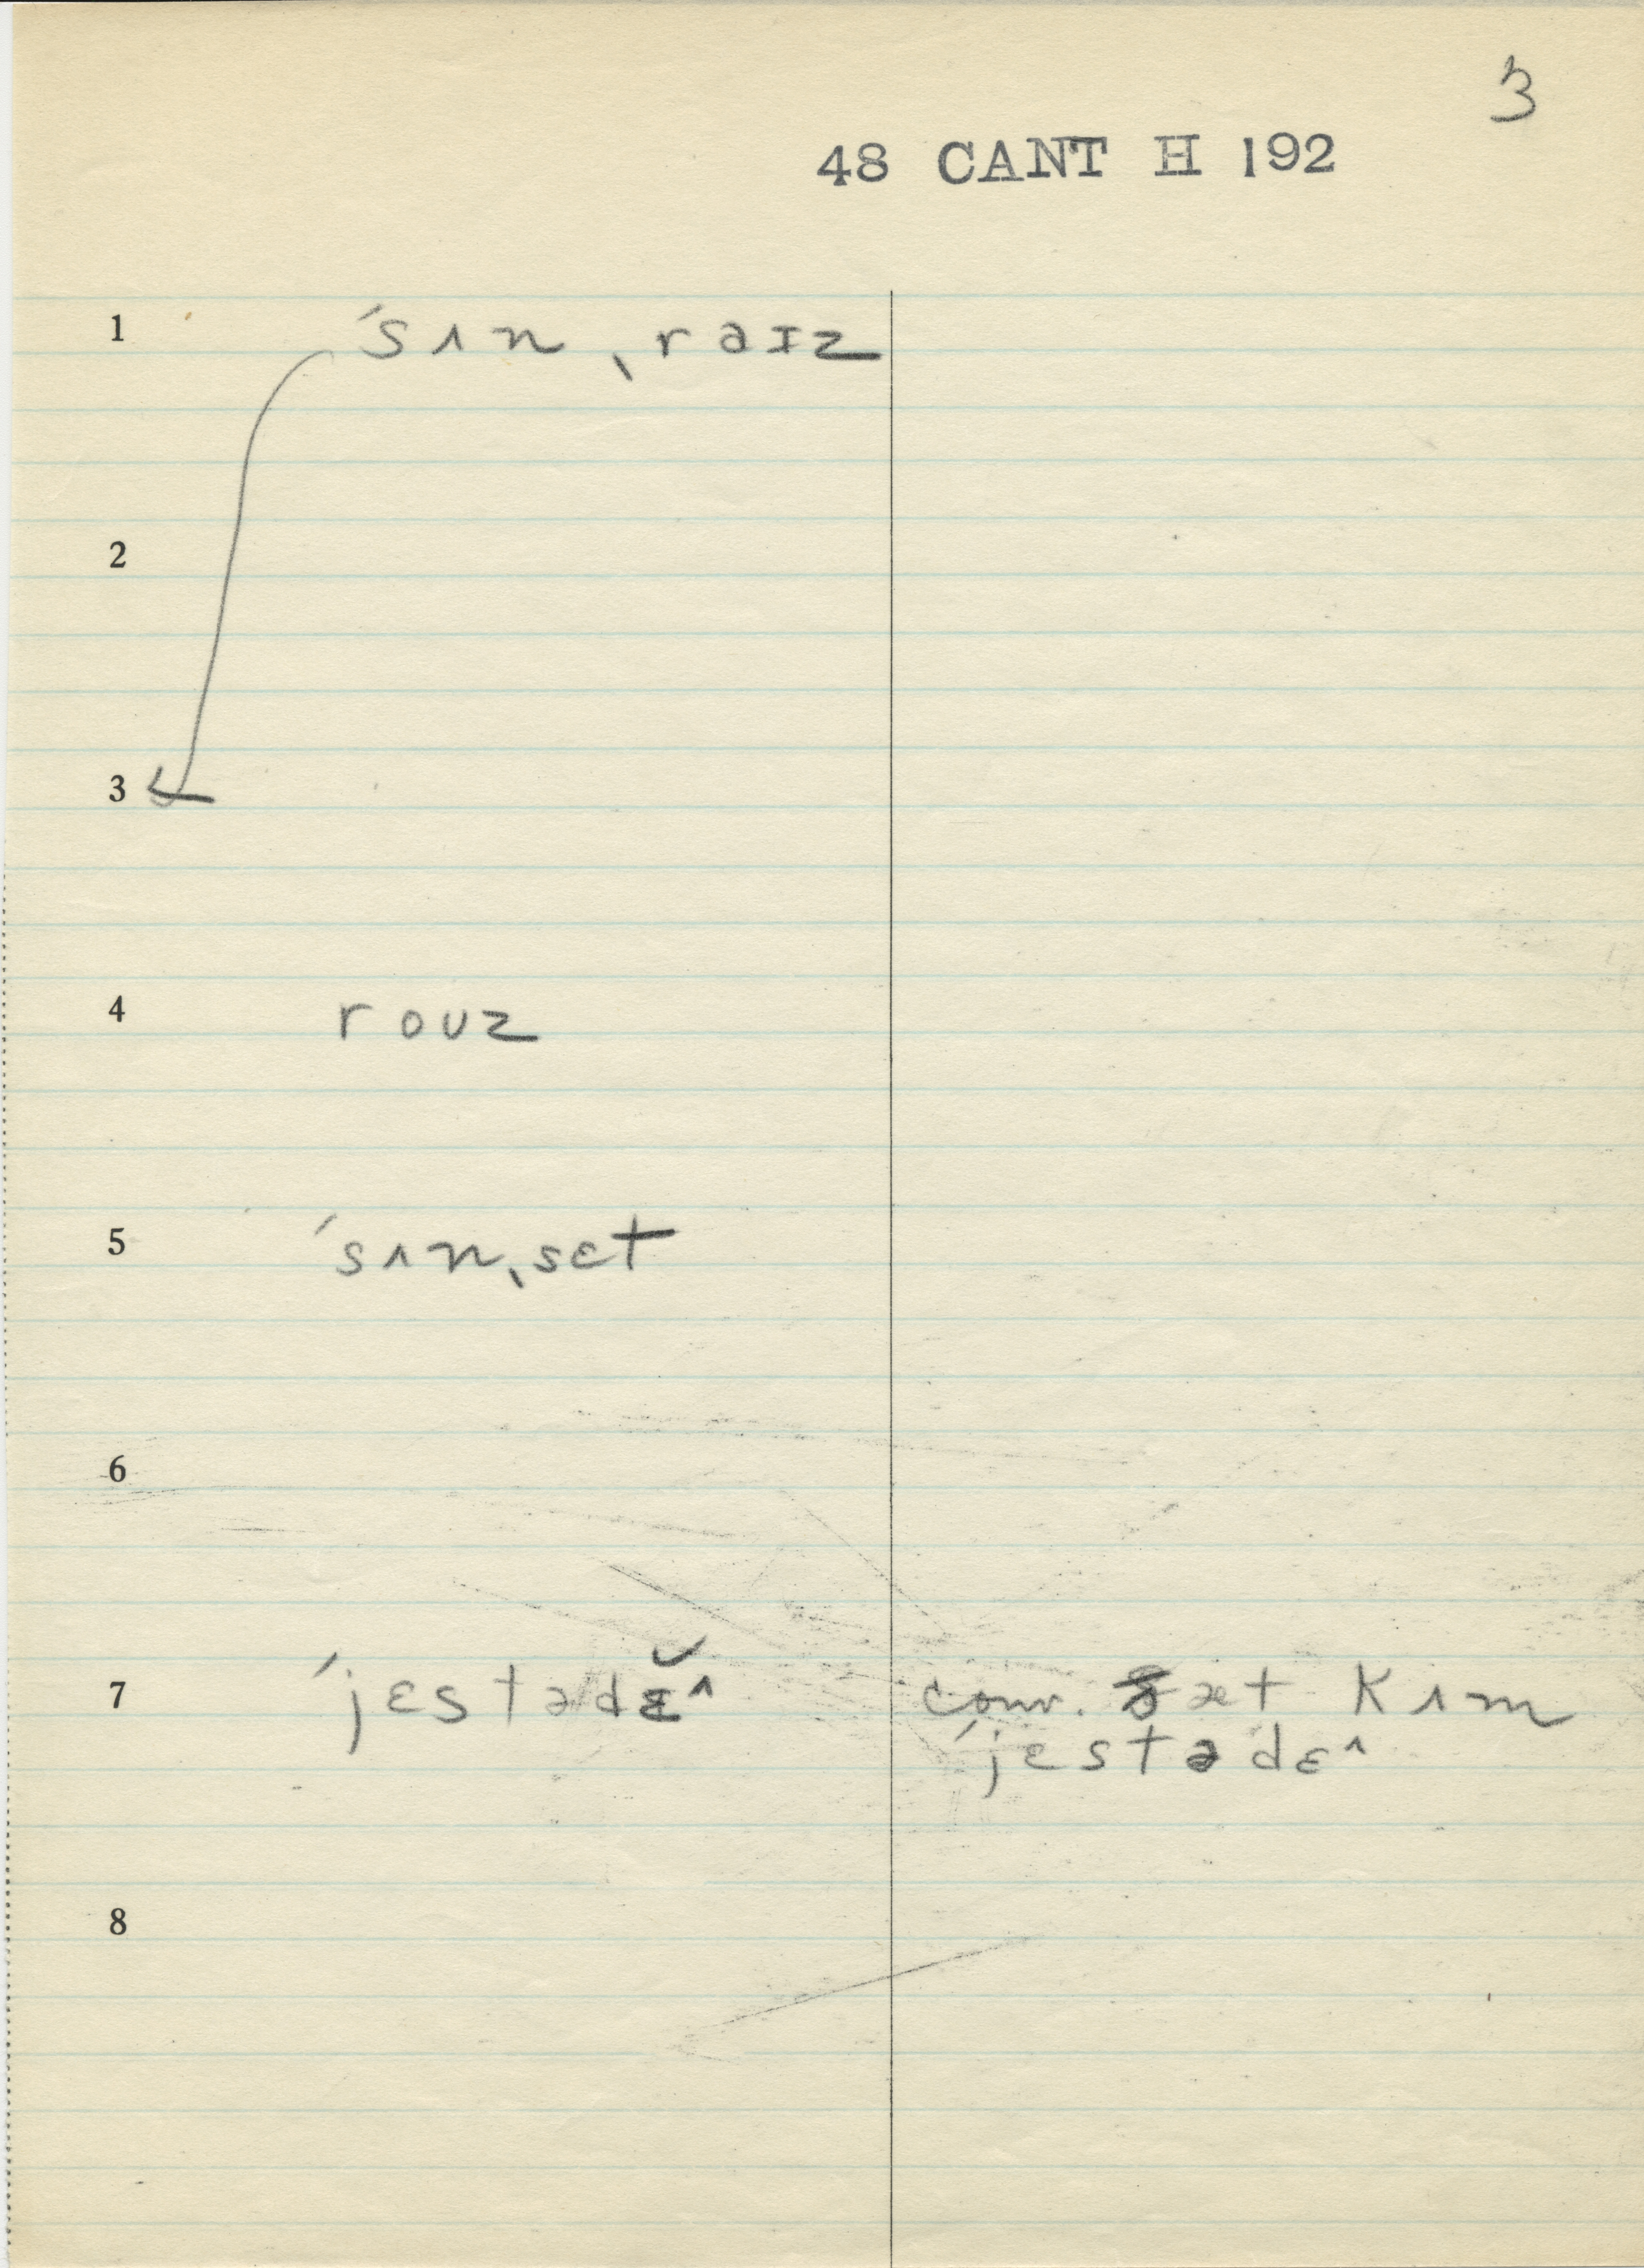 3
48 CANT H 192
1 ˈsʌn ˌraɪz
2
3
4 roʊz
5 ˈsʌnˌsɛt
6
7 ˈjɛstədɛ̆^ conv. ðæt kʌm
ˈjɛstədɛ^
8